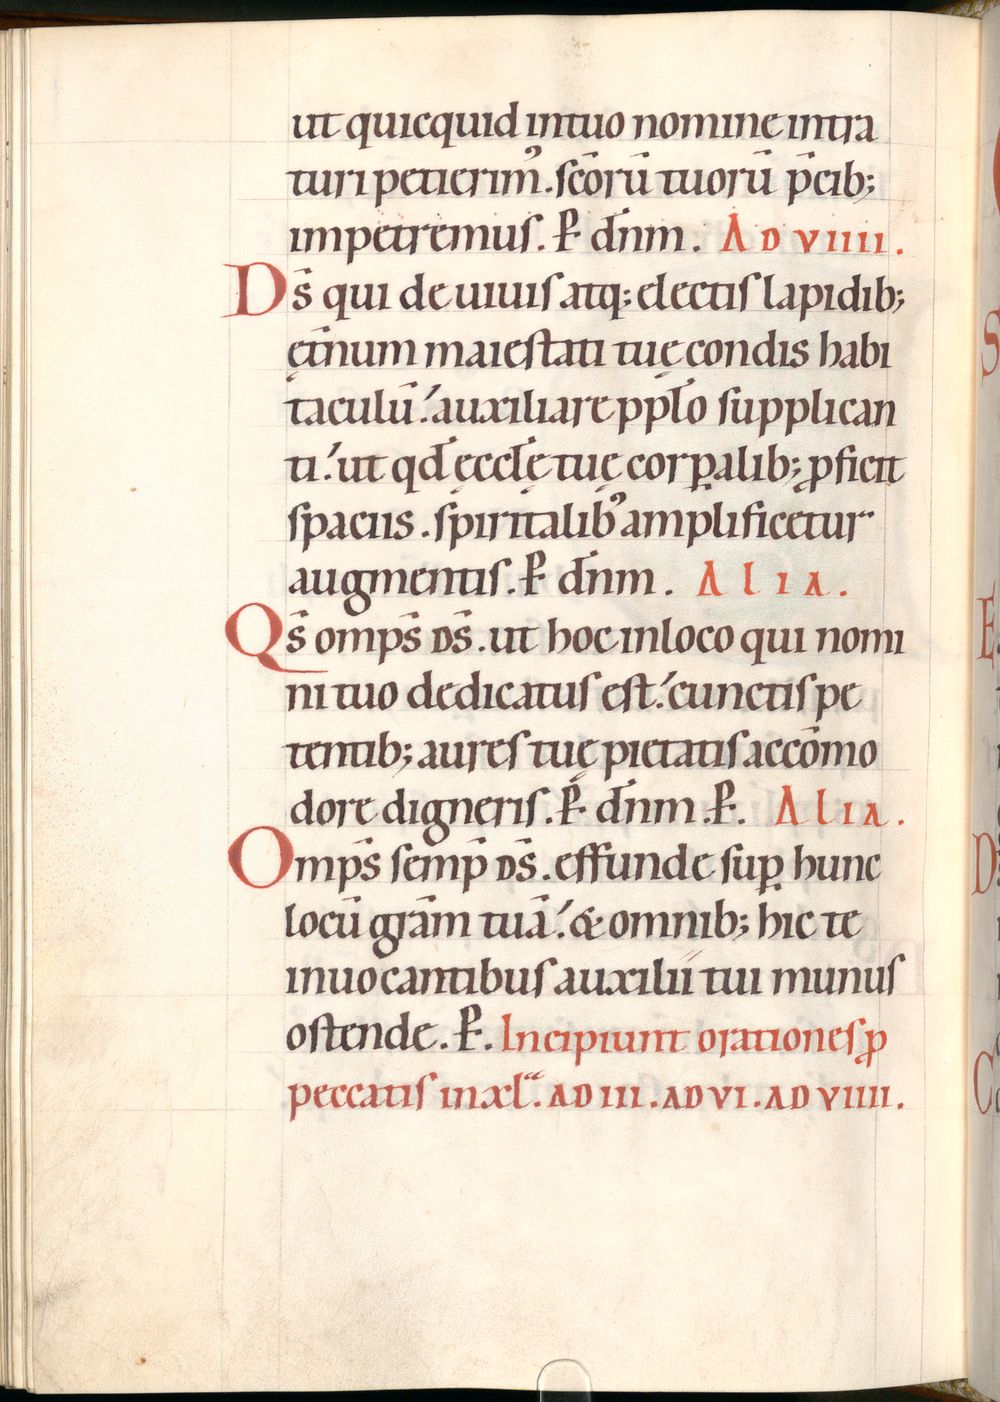 ut quicquid in tuo nomine intra
turi petierim᾿. scõrũ tuorũ p̄cib;
impetremus. P̱ dn̄m. AD VIIII.
Ds̄ qui de uiuis atq; electis lapidib;
ęt̄num maiestati tuę condis habi
taculũ. auxiliare pplo̅ supplican
ti. ut qd̄ ęccłę tuę corꝑalib; ꝓficit
spaciis. spiritalib᾿ amplificetur
augmentis. P̱ dn̄m. Alia.
Qs̄ omps̄ DS̄. ut hoc in loco qui nomi
ni tuo dedicatus est. cunctis pe
tentib; aures tuę pietatis accõmo
dore digneris. P̱ dn̄m. P̱. Alia.
Omps̄ semp̄ DS̄. effunde suꝑ hunc
locũ grãm tuã. & omnib; hic te
inuocantibus auxilii tui munus
ostende. P̱. Incipiunt orationes ꝓ
peccatis in xl. AD III. AD VI. AD VIIII.